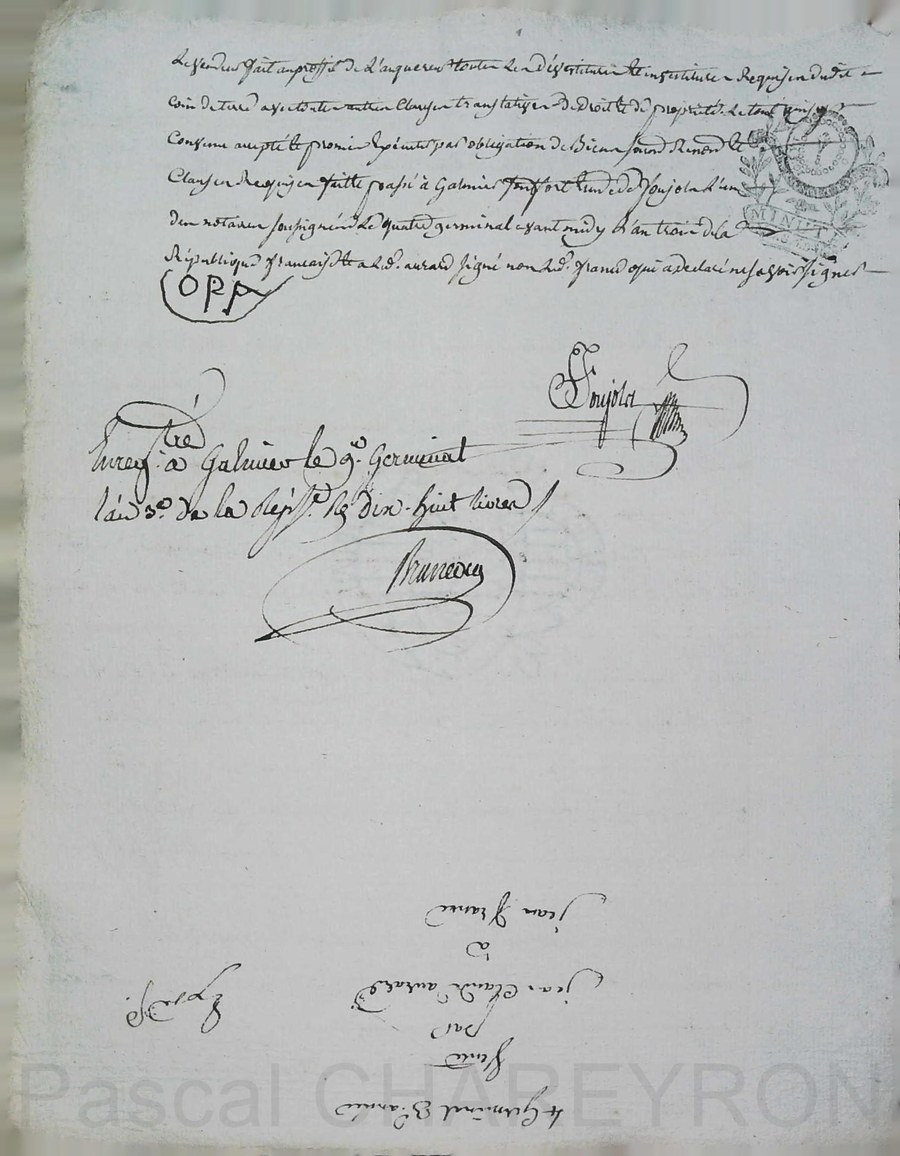 Le vendeur fait au proffit de l'aquereur toutes Les Dévestitures et investitures Requises dudit
coin de terre avec toutes autres Clauses translatives De Droit et de propriété. Le tout ainsy
Convenu accepté et promis Exécuter par obligation de Biens Soumis Renon. et
Clauses Requises faitte et passé à Galmier fontfort Etude de Soujola L'un
des notaires soussignés Le quatre germinal avant midy L'an trois de la
République française et a Led. avard signé non Led. franc qui a declaré ne savoir signer
MINUT
Soujola
Enregtré à Galmier le 9. Germinal
l'an 3e. de la Rép. R. dix-huit livres
4 Germinal 3. année
Vente
par
jean Claude avard
à
jean franc
Exped.
Pascal CHAREYRON